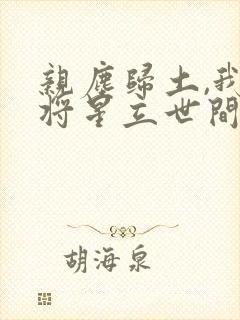 親塵歸土,我
將星立世間
胡海泉